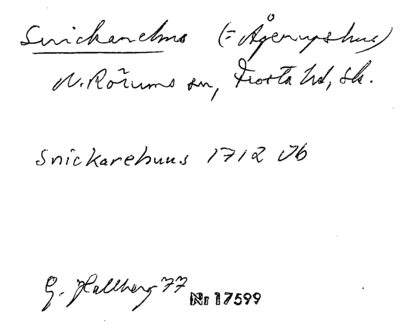 Snickarehus (= Ågerupshus)
N. Rörums sn, Frosta hd, Sk.
Snickarehuus 1712 Jb
G. Hallberg 77
Nr 17599